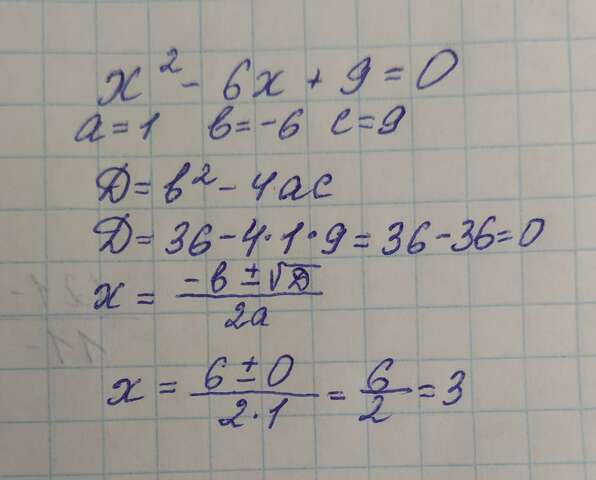 x² - 6x + 9 = 0
a = 1 в = -6 c = 9
Д = в² - 4ac
Д = 36 - 4·1·9 = 36 - 36 = 0
x = (-в ± √Д) / 2a
x = (6 ± 0) / (2·1) = 6/2 = 3